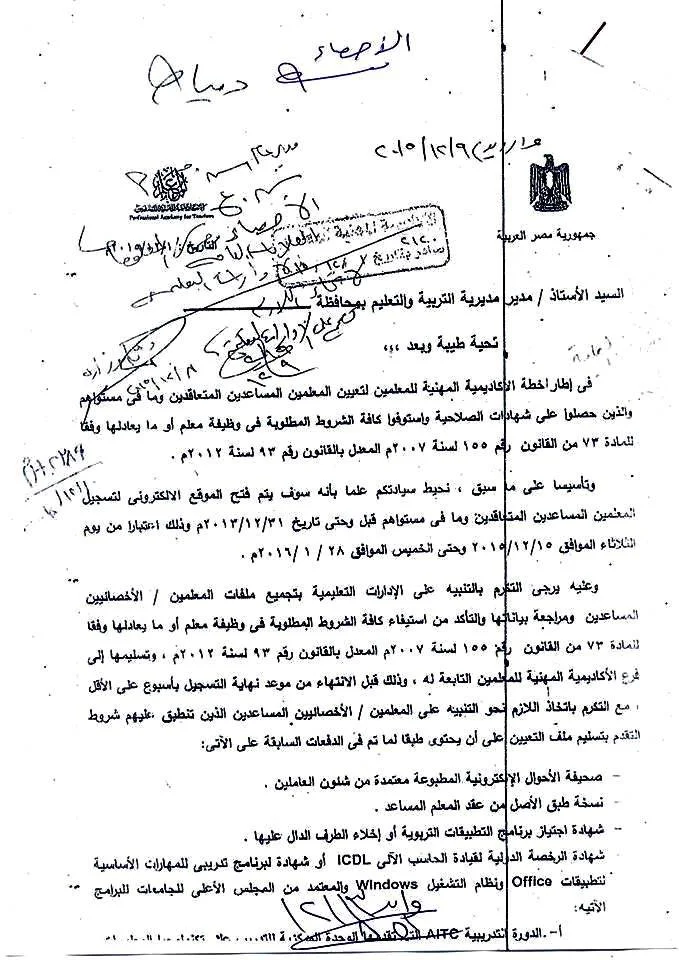 الاحصاء
دمياط
وارد في ٢٠١٥/١٢/٩
Professional Academy for Teachers
جمهورية مصر العربية
السيد الأستاذ / مدير مديرية التربية والتعليم بمحافظة
تحية طيبة وبعد ،،،
فى إطار خطة الأكاديمية المهنية للمعلمين لتعيين المعلمين المساعدين المتعاقدين وما فى مستواهم
والذين حصلوا على شهادات الصلاحية واستوفوا كافة الشروط المطلوبة فى وظيفة معلم أو ما يعادلها وفقا
للمادة ٧٣ من القانون رقم ١٥٥ لسنة ٢٠٠٧م المعدل بالقانون رقم ٩٣ لسنة ٢٠١٢م .
وتأسيسا على ما سبق ، نحيط سيادتكم علما بأنه سوف يتم فتح الموقع الالكترونى لتسجيل
المعلمين المساعدين المتعاقدين وما فى مستواهم قبل وحتى تاريخ ٢٠١٣/١٢/٣١م وذلك اعتبارا من يوم
الثلاثاء الموافق ٢٠١٥/١٢/١٥ وحتى الخميس الموافق ٢٨ / ١ / ٢٠١٦م .
وعليه يرجى التكرم بالتنبيه على الإدارات التعليمية بتجميع ملفات المعلمين / الأخصائيين
المساعدين ومراجعة بياناتها والتأكد من استيفاء كافة الشروط المطلوبة فى وظيفة معلم أو ما يعادلها وفقا
للمادة ٧٣ من القانون رقم ١٥٥ لسنة ٢٠٠٧م المعدل بالقانون رقم ٩٣ لسنة ٢٠١٢م ، وتسليمها إلى
فرع الأكاديمية المهنية للمعلمين التابعة له ، وذلك قبل الانتهاء من موعد نهاية التسجيل بأسبوع على الأقل
، مع التكرم باتخاذ اللازم نحو التنبيه على المعلمين / الأخصائيين المساعدين الذين تنطبق عليهم شروط
التقدم بتسليم ملف التعيين على أن يحتوى طبقا لما تم فى الدفعات السابقة على الآتى:
- صحيفة الأحوال الإلكترونية المطبوعة معتمدة من شئون العاملين .
- نسخة طبق الأصل من عقد المعلم المساعد .
- شهادة اجتياز برنامج التطبيقات التربوية أو إخلاء الطرف الدال عليها .
شهادة الرخصة الدولية لقيادة الحاسب الآلى ICDL أو شهادة لبرنامج تدريبى للمهارات الأساسية
لتطبيقات Office ونظام التشغيل Windows والمعتمد من المجلس الأعلى للجامعات للبرامج
الآتيه:
أ- الدورة التدريبية AITC التى تقدمها الوحدة المركزية للتدريب على تكنولوجيا المعلومات